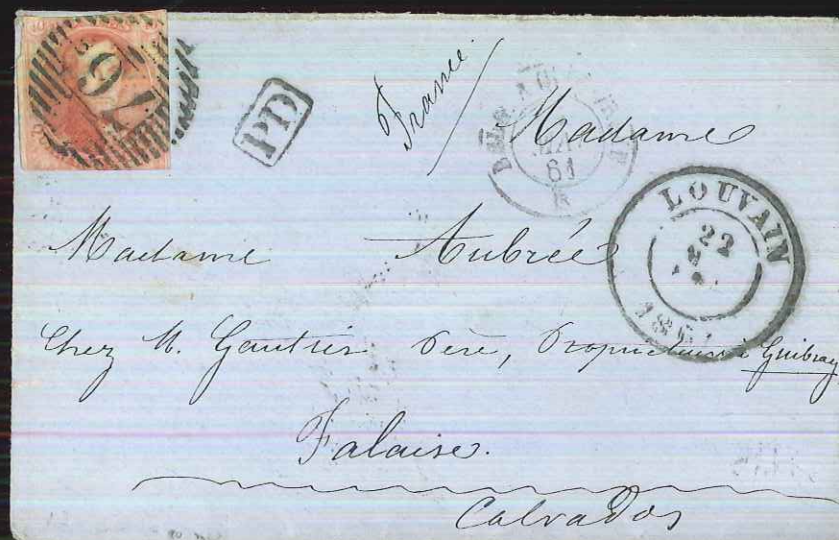 76
PD
France
Madame
61
LOUVAIN
22
1861
Madame Aubrée
Chez M. Gautier Père, Propriétaire à Guibray
Falaise.
Calvados